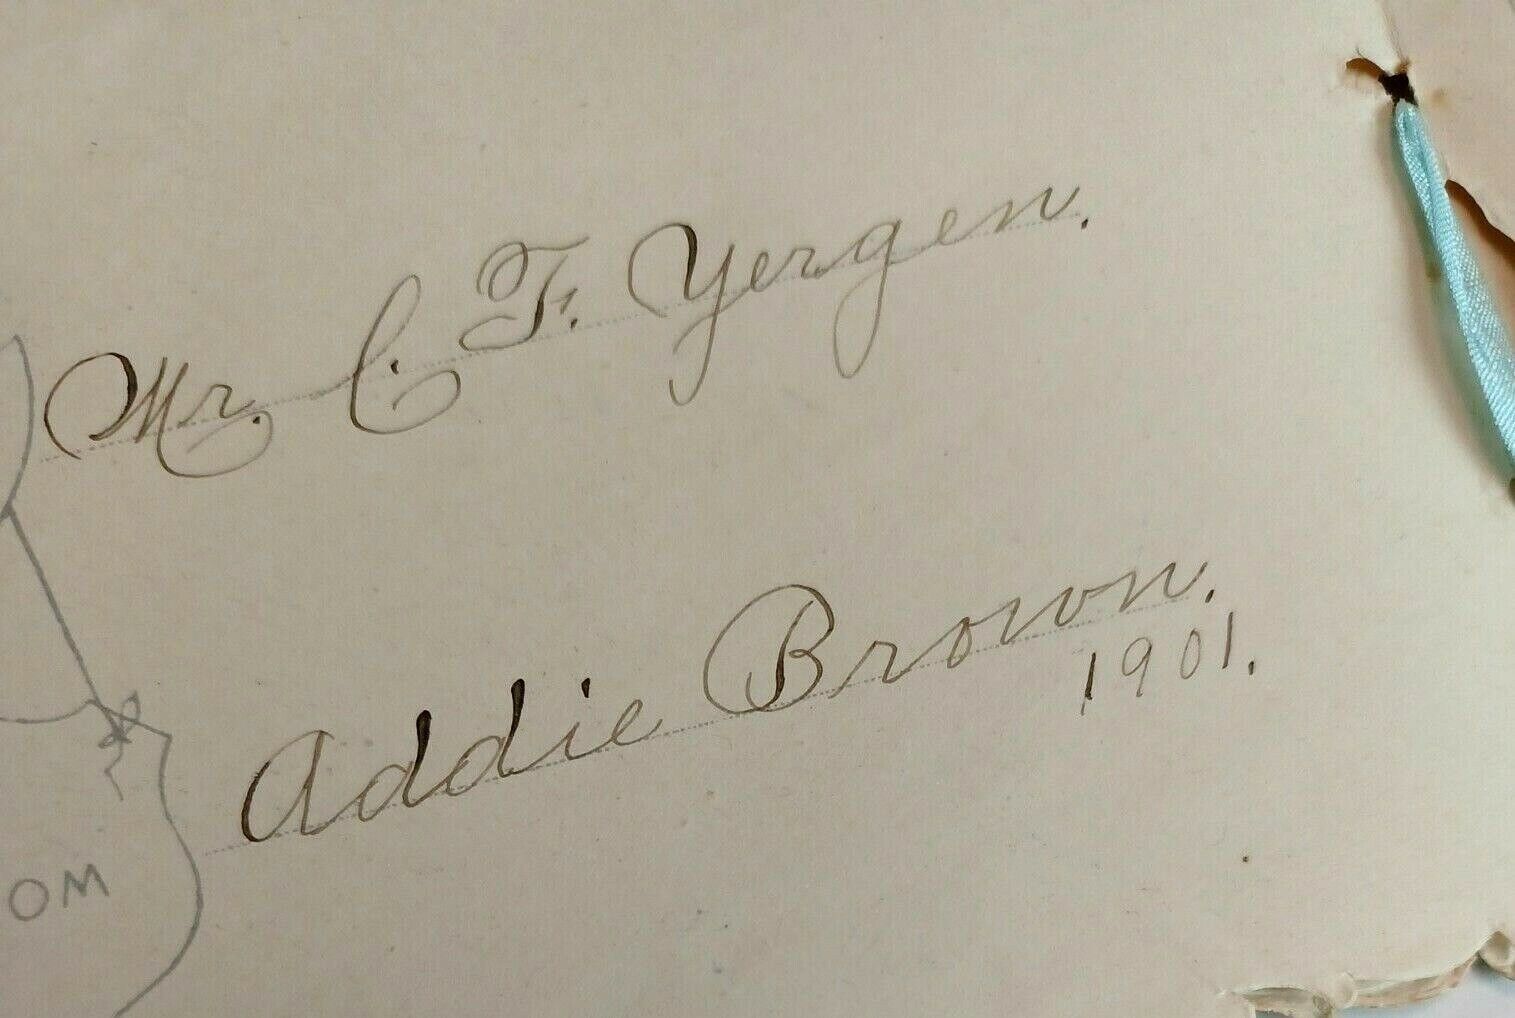 Mr. C. F. Yergen.
Addie Brown.
1901.
OM